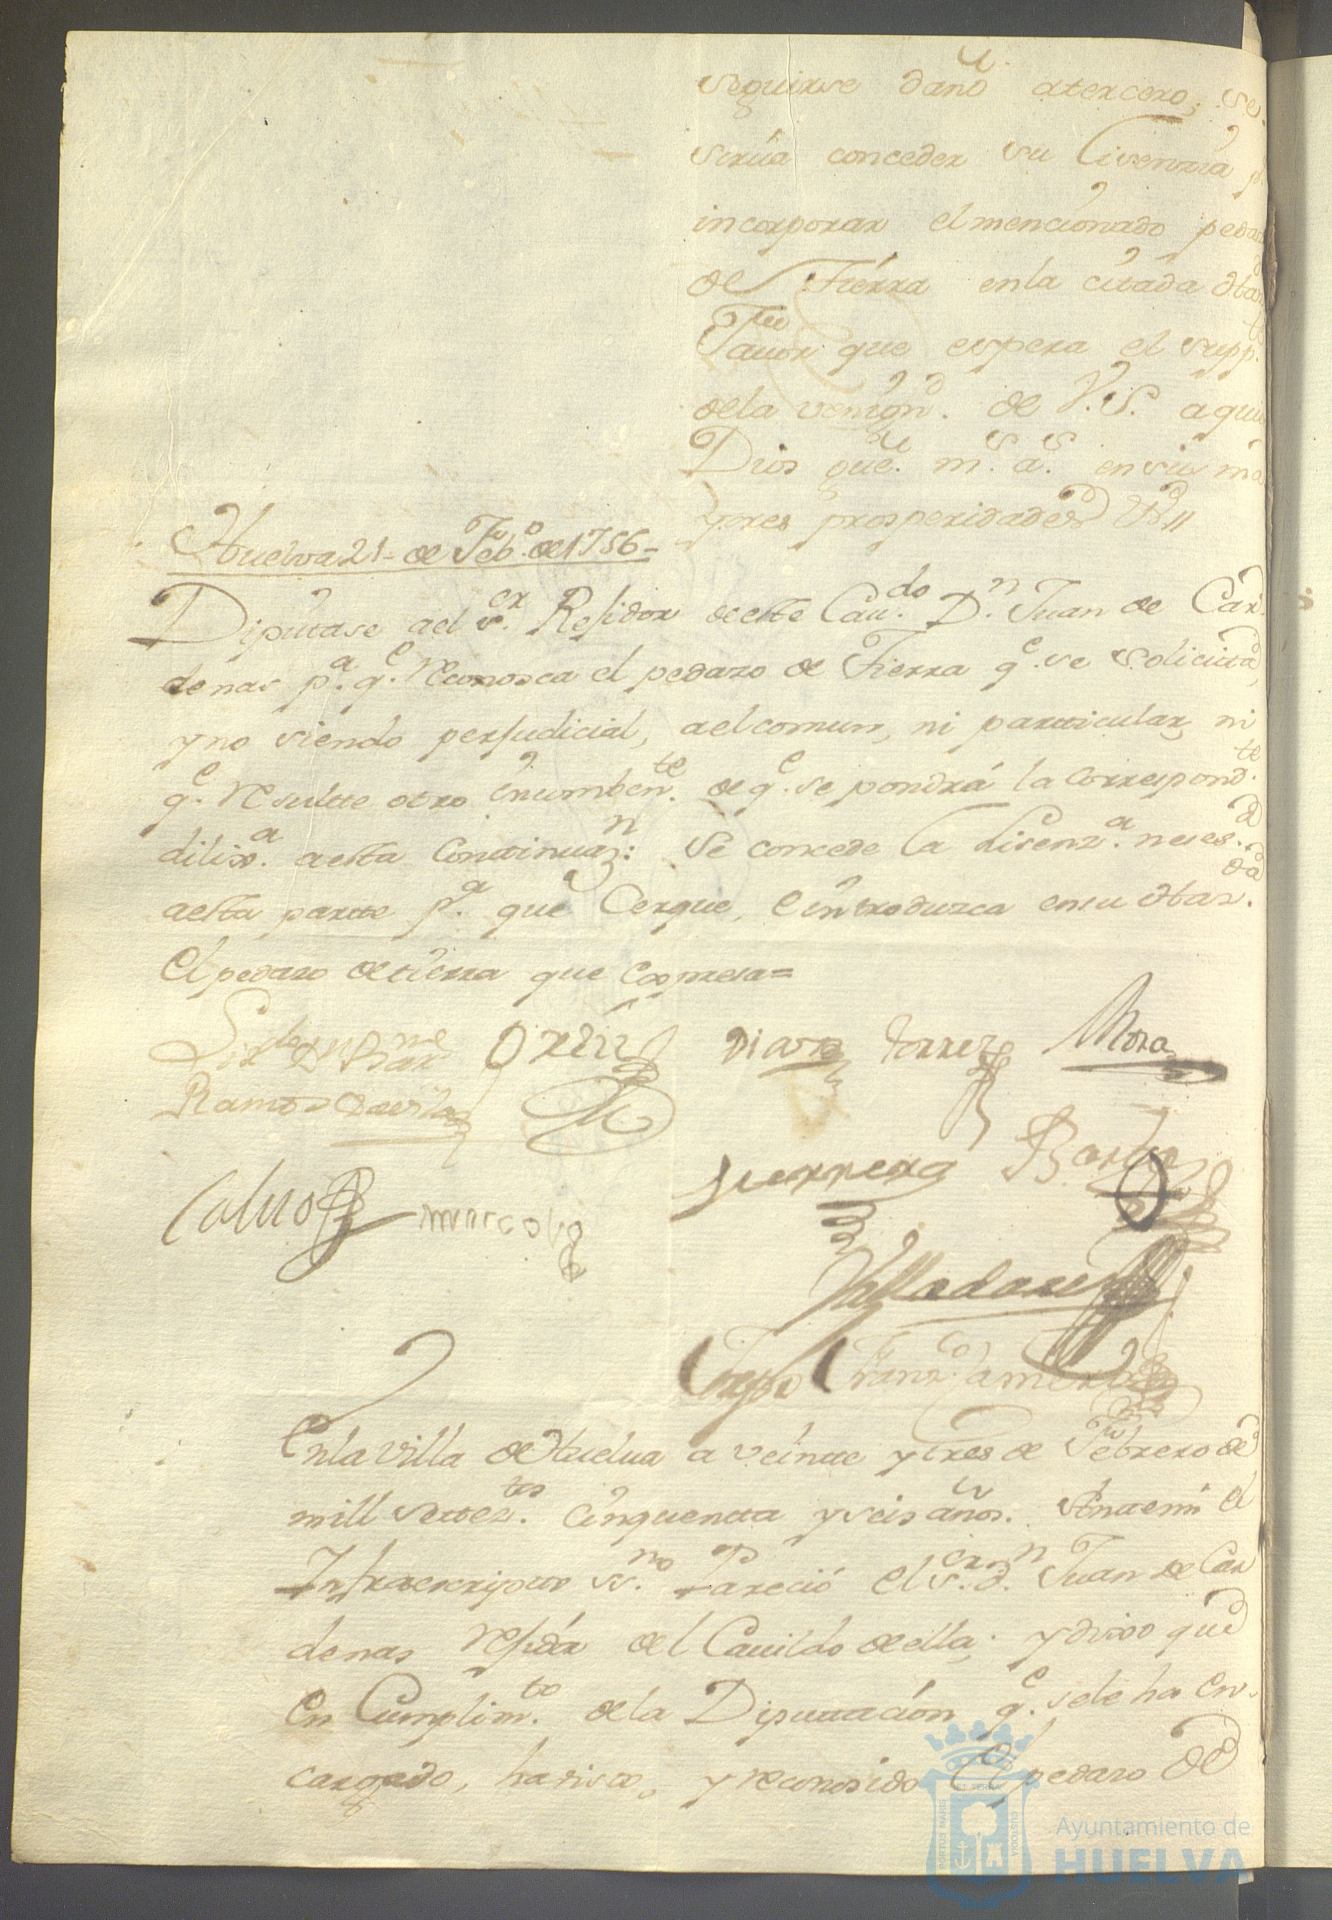 seguirse daño atercero; se
sirua conceder su Lisenzia p.ª
incorporar elmencionado pedazo
de Tierra enla citada
Fauor que espera el supp.
dela venign.d de V.S. a quien
Dios gũe. m.s a.s ensus ma
yores prosperidades
Huelva 21- de Feb.o de1756-
Diputase ael s.or Residor deeste Cau.do D.n Juan de Car
denas p.a q.e Reconosca el pedazo de Tierra q.e se solicitta,
y no siendo perjudicial, aelcomun, ni particular, ni
q.e Resultte otro Ynconben.te de q.e se pondrá la Correspond.te
dilix.a aesta Continuaz.n: Se concede la Lisenz.a neses.a
aesta partte p.a que Cerque, e introdusca ensu
El pedazo detierra que Expresa=
Ramos Davila
Diaz Torres Mora
Guerrera
Caluo
Valladares
Enla Villa de Huelua a veintte y tres de Febrero de
mill settez.tos Cinquentta y seis años. Antemi el
Infraescripto ss.no Pareció el s.or d.n Juan de Car
denas residór del Cauildo deella; y dixo que
En Cumplim.to dela Diputtación q.e sele ha En-
cargado, ha visto, y reconosido El pedazo de
Ayuntamiento de
HUELVA